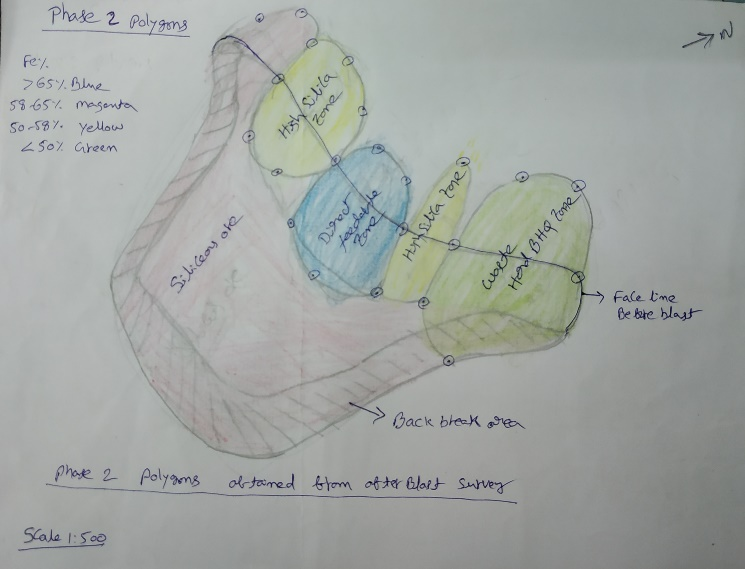 Phase 2 Polygons
N
Fe%
>65% Blue
58-65% magenta
50-58% Yellow
<50% Green
High Silica
Zone
Direct
feedable
Zone
High Silica Zone
Waste
Hard BHQ Zone
Siliceous ore
Face line
Before blast
Back break area
Phase 2 Polygons obtained from after Blast Survey
Scale 1:500